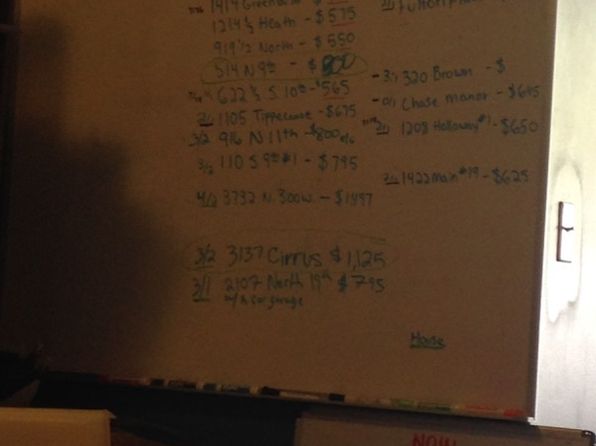 1414 Greenbush
1214 ½ Heath - $575
919 ½ North - $550
514 N 9th - $800
622 ½ S. 10th - $565
2/1 1105 Tippecanoe - $675
3/2 916 N 11th - $800
3/2 110 S 9th #1 - $795
4/2 3732 N. 300W. - $1497
3/2 3137 Cirrus $1,125
3/1 2107 North 19th $795
w/ A Car garage
- 3/1 320 Brown - $
- Chase Manor - $645
2/1 1208 Holloway #1 - $650
1422 Main #19 - $625
NOW